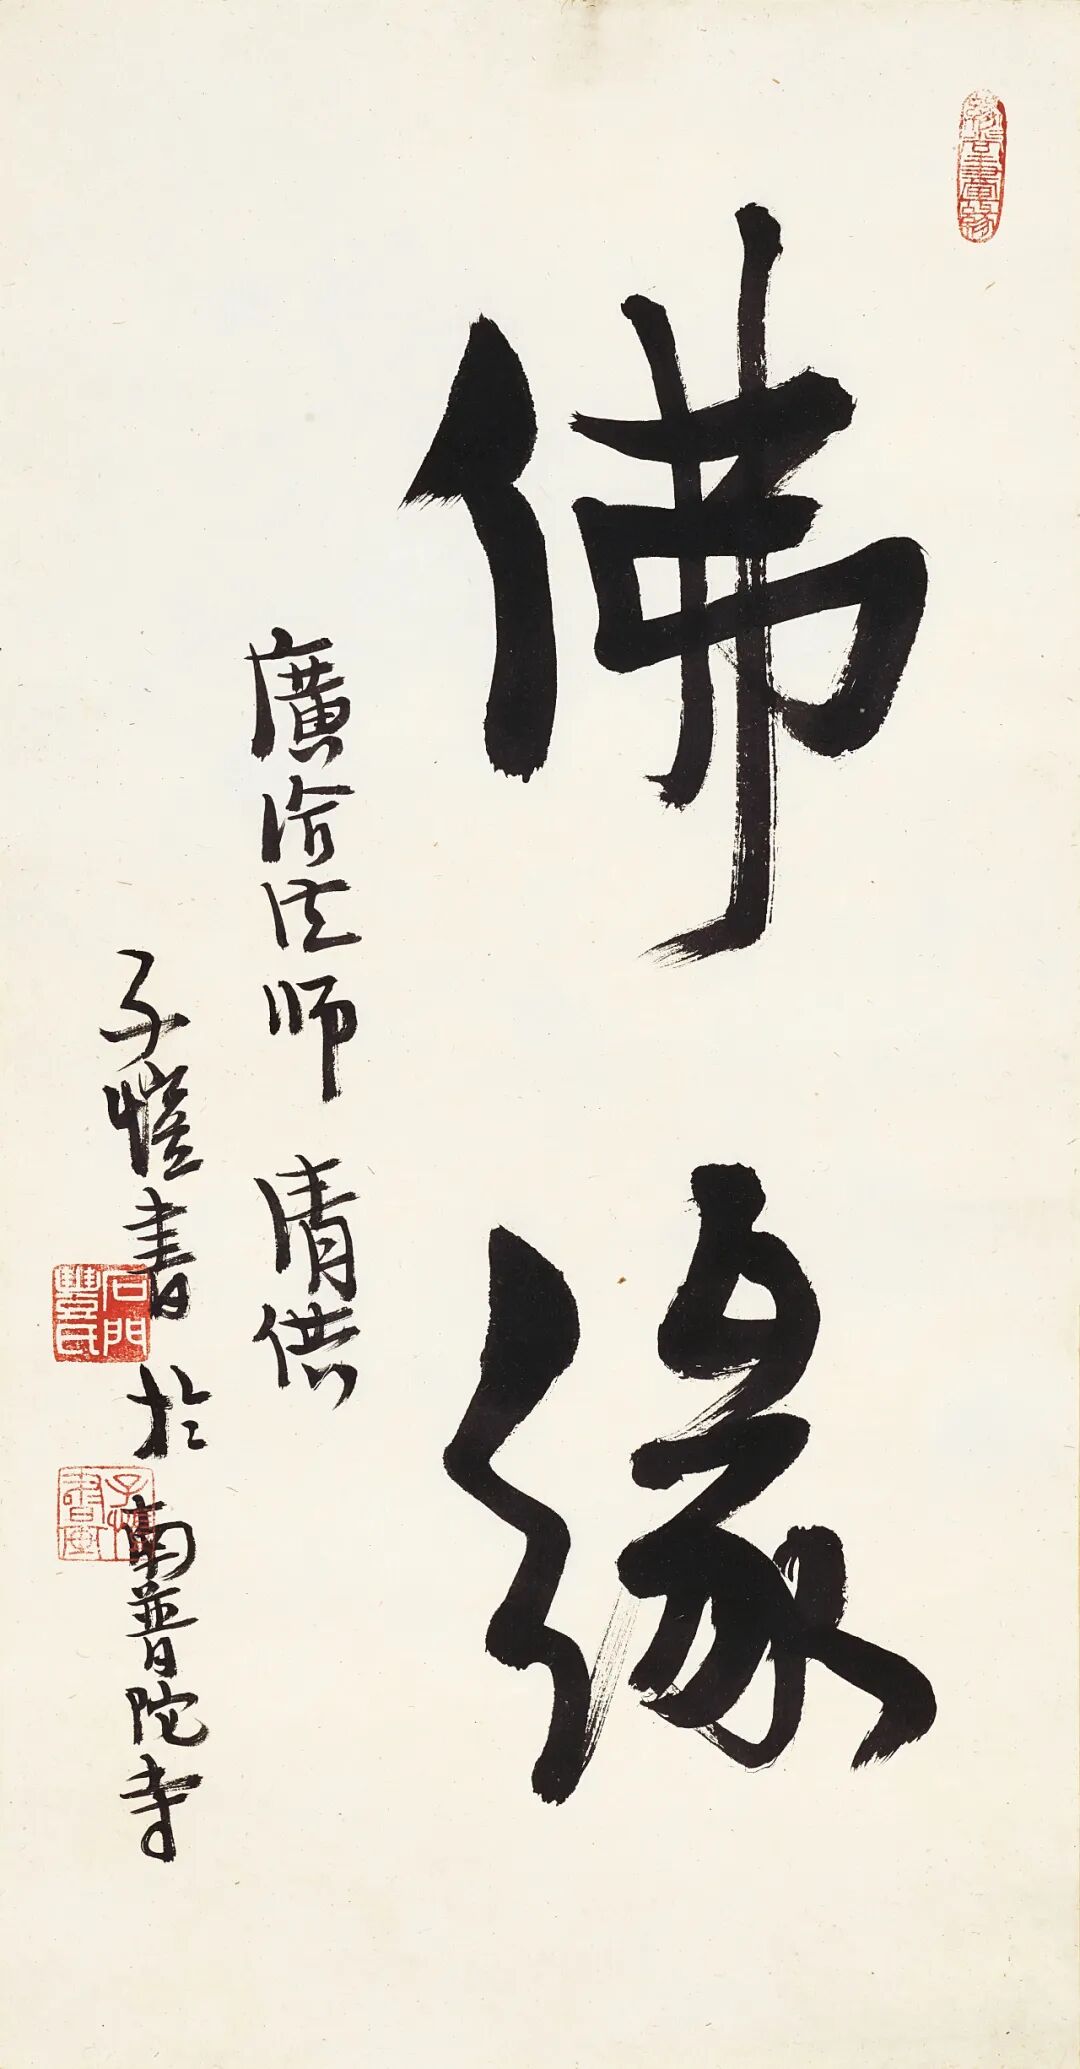 佛緣
廣洽法師 清供
子愷書於南普陀寺
石門豐氏
子愷書画